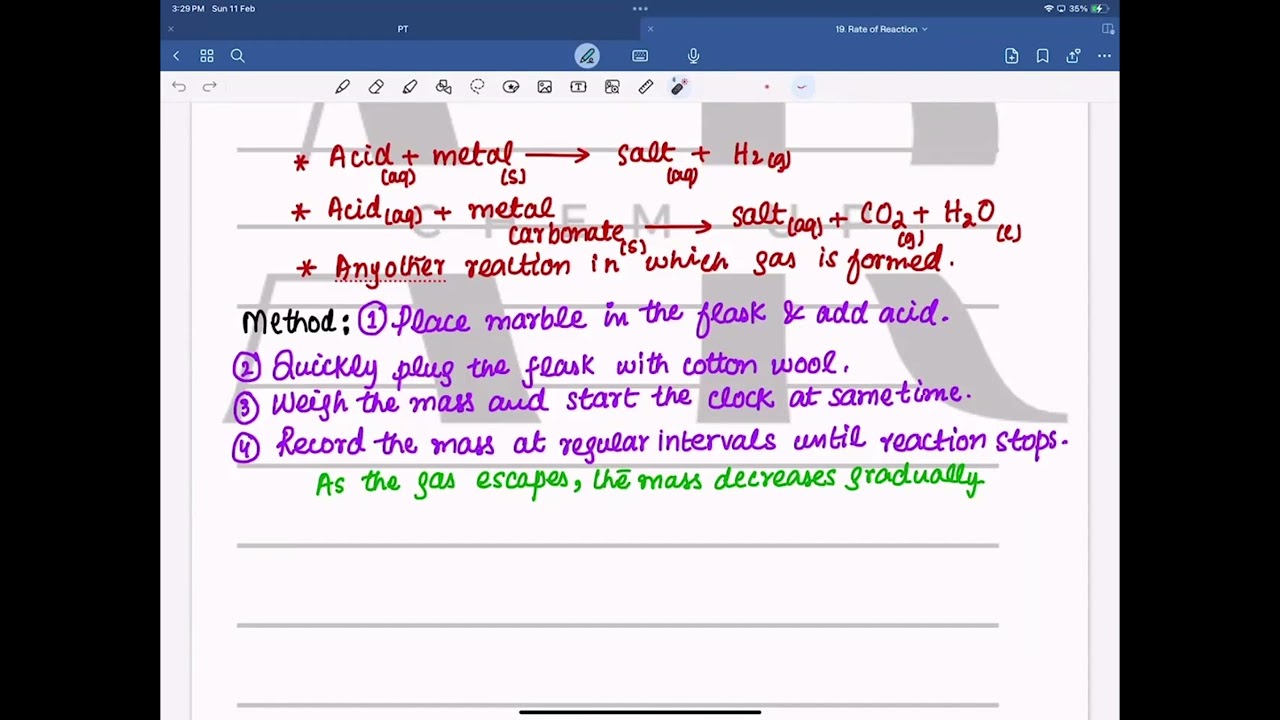 3:29 PM Sun 11 Feb
35%
PT
19. Rate of Reaction
* Acid(aq) + metal(s) → salt(aq) + H2(g)
* Acid(aq) + metal carbonate(s) → salt(aq) + CO2(g) + H2O(l)
* Anyother reaction in which gas is formed.
Method: ① Place marble in the flask & add acid.
② Quickly plug the flask with cotton wool.
③ Weigh the mass and start the clock at sametime.
④ Record the mass at regular intervals until reaction stops.
As the gas escapes, the mass decreases gradually
CHEM UP